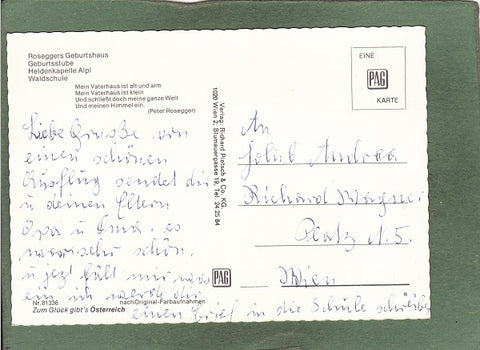 Roseggers Geburtshaus
Geburtsstube
Heldenkapelle Alpl
Waldschule
Mein Vaterhaus ist alt und arm
Mein Vaterhaus ist klein
Und schließt doch meine ganze Welt
Und meinen Himmel ein.
(Peter Rosegger)
Liebe Grüße von
einen schönen
Ausflug sendet dir
u deinen Eltern
Opa u Oma. es
war sehr schön.
u jezt fällt mir was
ein ich werde dir
einen Brief in die Schule schreiben
Nr. 81336
nach Original-Farbaufnahmen
Zum Glück gibt's Österreich
Verlag: Richard Pietsch & Co. KG.
1000 Wien 2, Blumauergasse 19, Tel. 24 25 84
PAG
EINE
PAG
KARTE
An
Jakub Andrea
Richard Wagner
Platz N. 5.
Wien